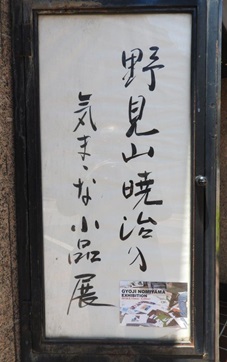 野見山暁治の
気まゝな小品展
GYOJI NOMIYAMA
EXHIBITION